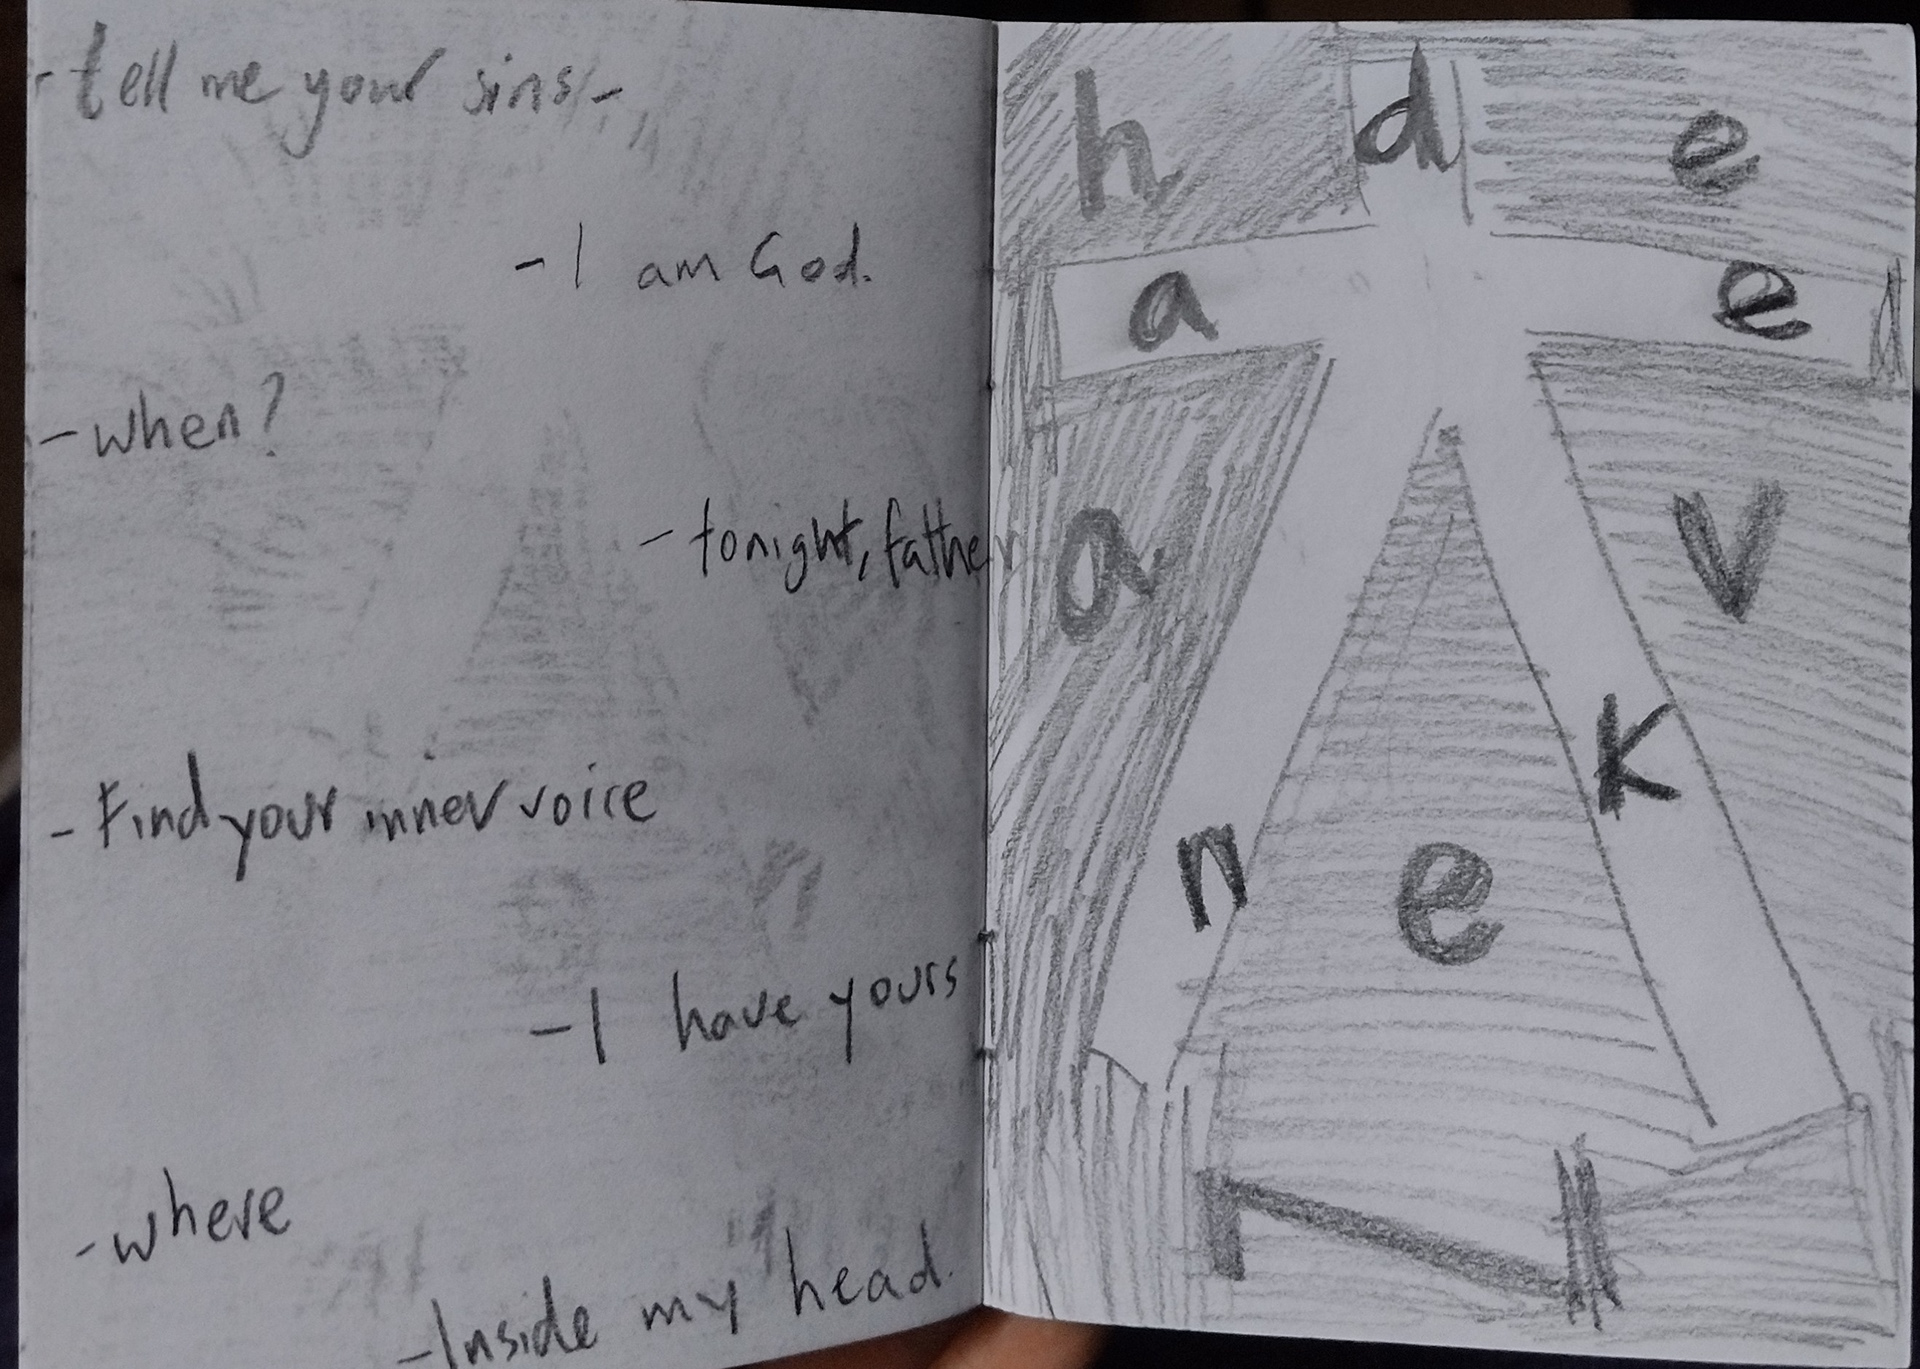 - tell me your sins -
- I am God.
- when?
- tonight, father
- Find your inner voice
- I have yours
- where
- Inside my head.
h d e
a e
a v
k
n e
N